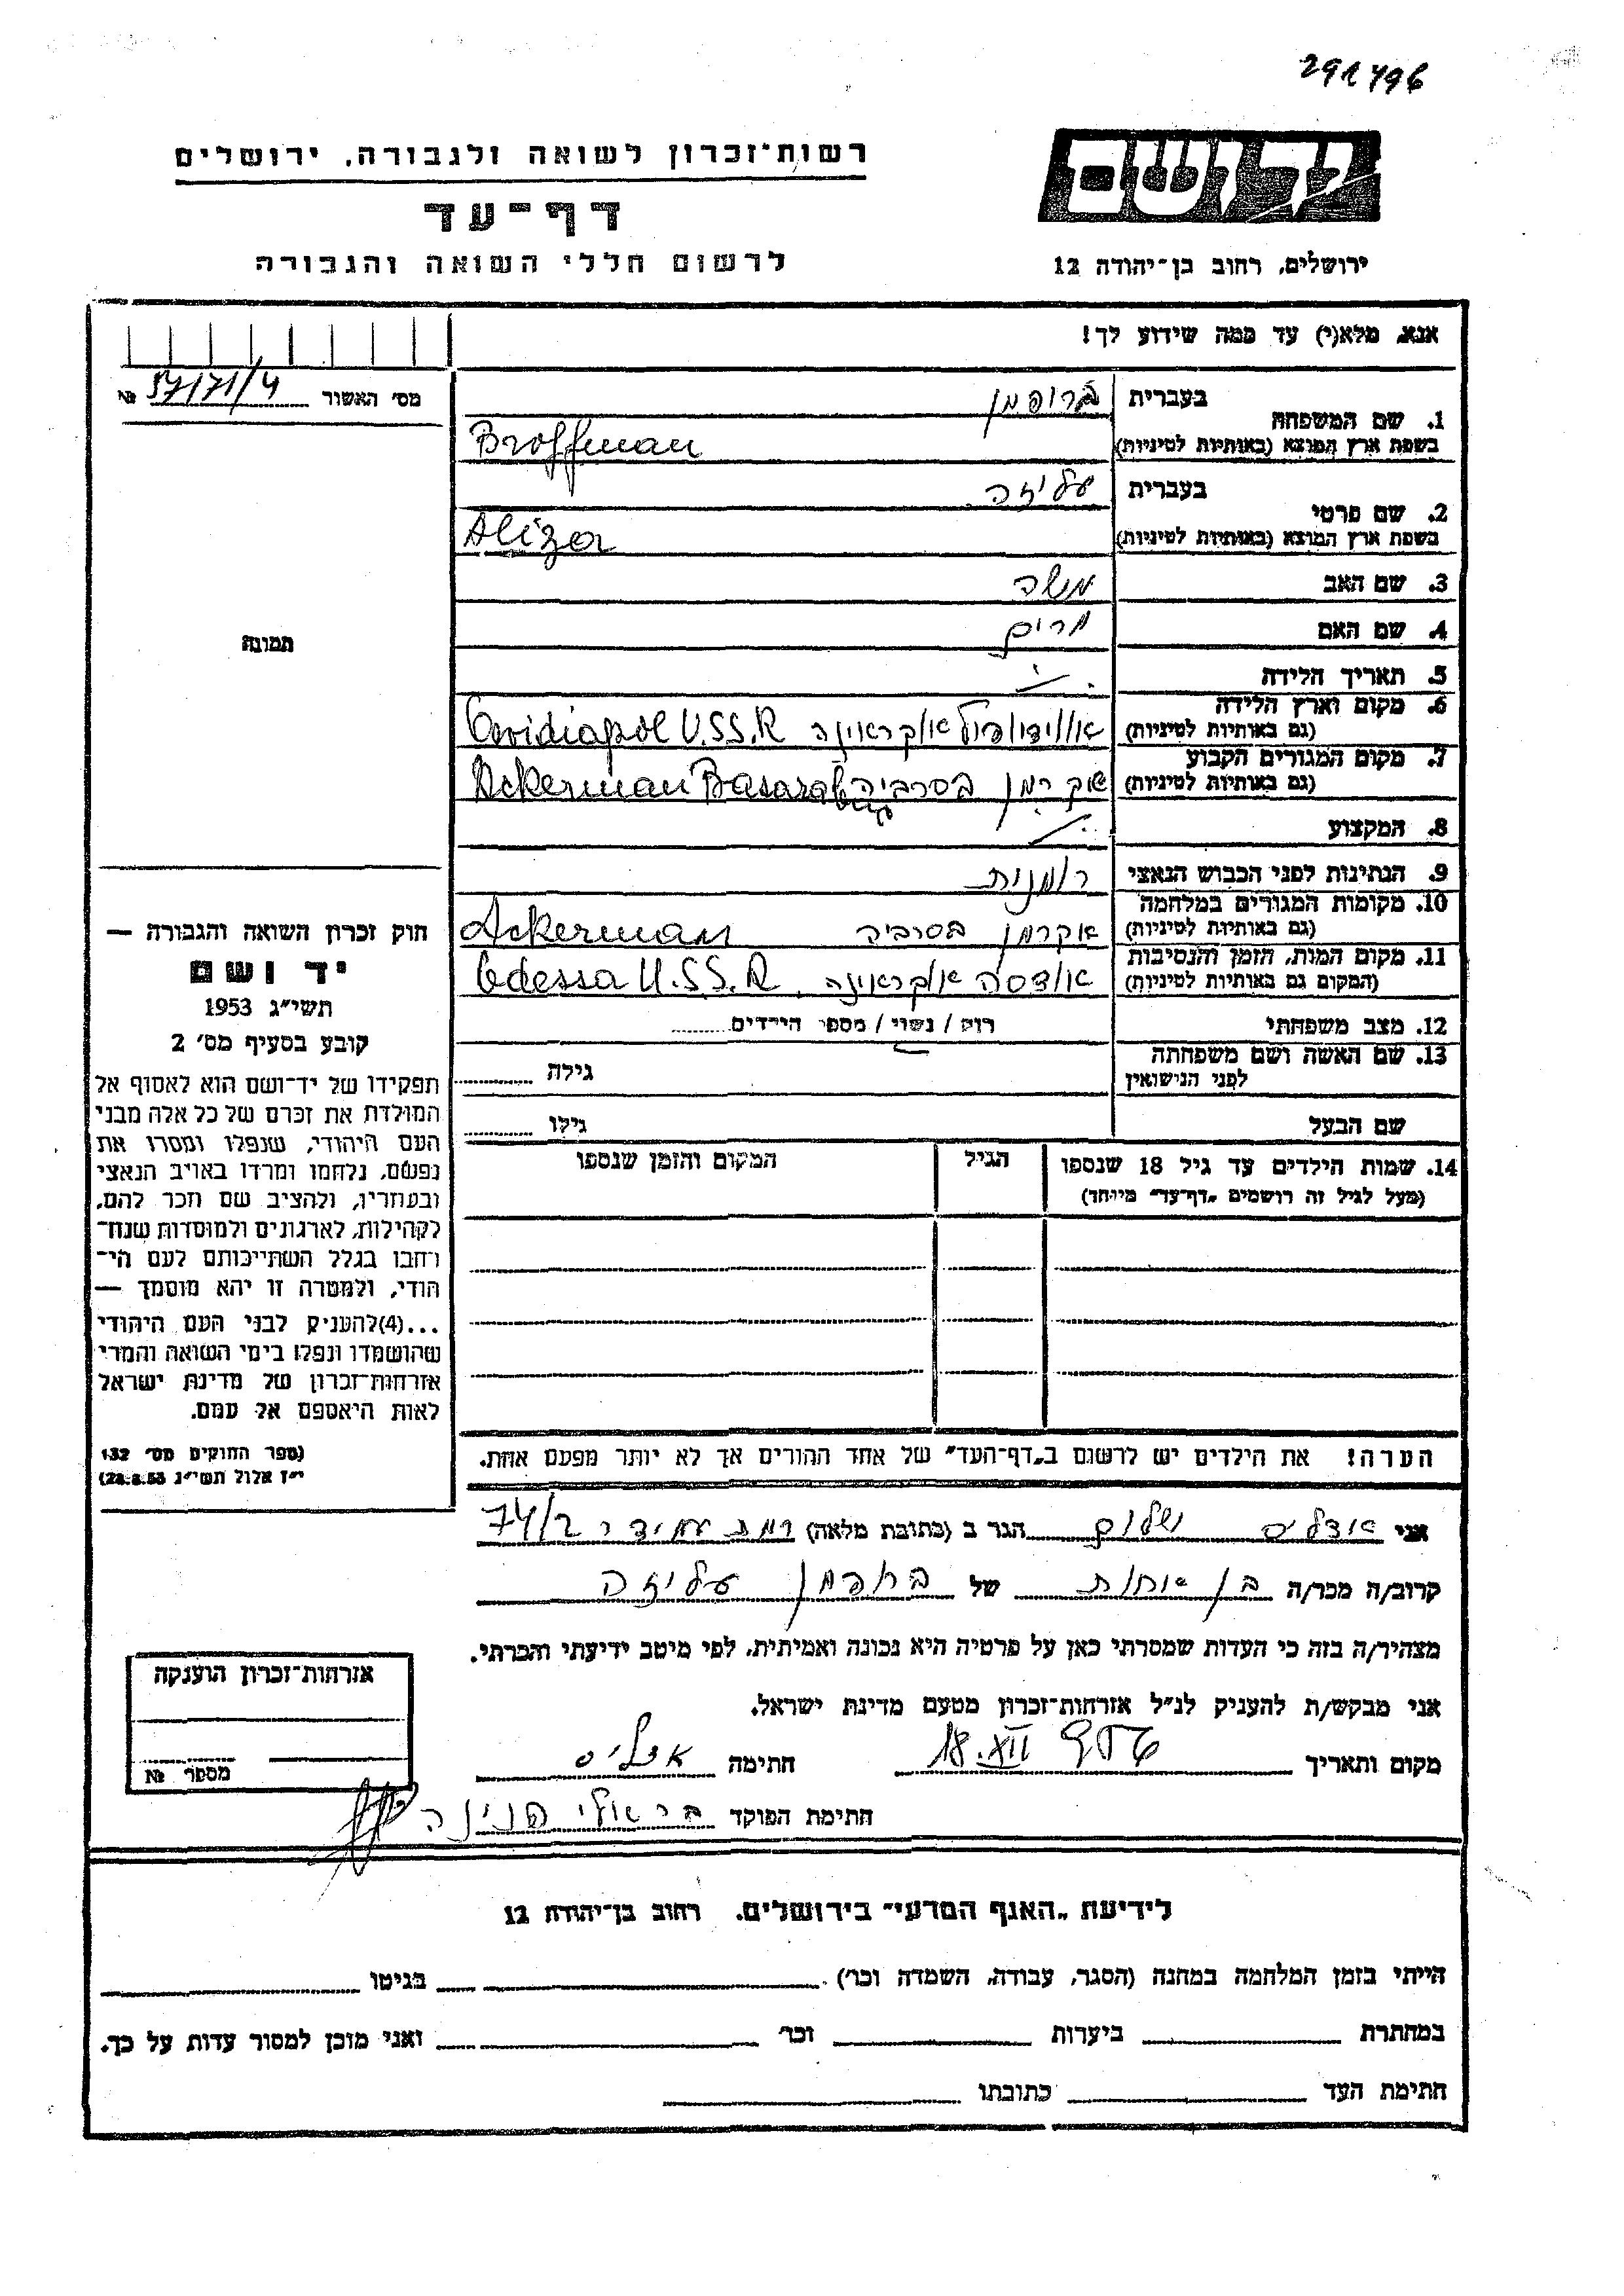 291496
רשות־זכרון לשואה ולגבורה, ירושלים
יד ושם
דף־עד
לרשום חללי השואה והגבורה
ירושלים, רחוב בן־יהודה 12
אנא, מלא(י) עד כמה שידוע לך!
מס׳ האשור № 57/71/4
1. שם המשפחה בעברית ברופמן
בשפת ארץ המוצא (באותיות לטיניות) Broffman
2. שם פרטי בעברית עליזה
בשפת ארץ המוצא (באותיות לטיניות) Aliza
3. שם האב משה
4. שם האם מרים
תמונה
5. תאריך הלידה
6. מקום וארץ הלידה (גם באותיות לטיניות) אווידיופול אוקראינה Ovidiapol U.S.S.R
7. מקום המגורים הקבוע (גם באותיות לטיניות) בסרביה Ackerman
8. המקצוע
9. הנתינות לפני הכבוש הנאצי רומנית
10. מקומות המגורים במלחמה (גם באותיות לטיניות) אקרמן בסרביה Ackerman
11. מקום המות, הזמן והנסיבות (המקום גם באותיות לטיניות) אודסה אוקראינה Odessa U.S.S.R
12. מצב משפחתי רווק / נשוי / מספר הילדים
13. שם האשה ושם משפחתה לפני הנישואין גילה
שם הבעל גילו
14. שמות הילדים עד גיל 18 שנספו (מעל לגיל זה רושמים „דף־עד” מיוחד) הגיל המקום והזמן שנספו
הערה! את הילדים יש לרשום ב„דף־העד” של אחד ההורים אך לא יותר מפעם אחת.
חוק זכרון השואה והגבורה —
יד ושם
תשי״ג 1953
קובע בסעיף מס׳ 2
תפקידו של יד־ושם הוא לאסוף אל
המולדת את זכרם של כל אלה מבני
העם היהודי, שנפלו ומסרו את
נפשם, נלחמו ומרדו באויב הנאצי
ובעוזריו, ולהציב שם וזכר להם,
לקהילות, לארגונים ולמוסדות שנח־
רבו בגלל השתייכותם לעם הי־
הודי, ולמטרה זו יהא מוסמך —
...(4) להעניק לבני העם היהודי
שהושמדו ונפלו בימי השואה והמרי
אזרחות־זכרון של מדינת ישראל
לאות היאספם אל עמם.
(ספר החוקים מס׳ 132
י״ז אלול תשי״ג 28.8.53)
אני שלום הגר ב (כתובת מלאה) רמת עמידר 74/2
קרוב/ה מכר/ה בן אחות של ברופמן עליזה
מצהיר/ה בזה כי העדות שמסרתי כאן על פרטיה היא נכונה ואמיתית, לפי מיטב ידיעתי והכרתי.
אני מבקש/ת להעניק לנ״ל אזרחות־זכרון מטעם מדינת ישראל.
מקום ותאריך 18.XII 956 חתימה
חתימת הפוקד
אזרחות־זכרון הוענקה
מספר №
לידיעת „האגף המדעי” בירושלים, רחוב בן־יהודה 12
הייתי בזמן המלחמה במחנה (הסגר, עבודה, השמדה וכו׳) בגיטו
במחתרת ביערות וכו׳ ואני מוכן למסור עדות על כך.
חתימת העד כתובתו